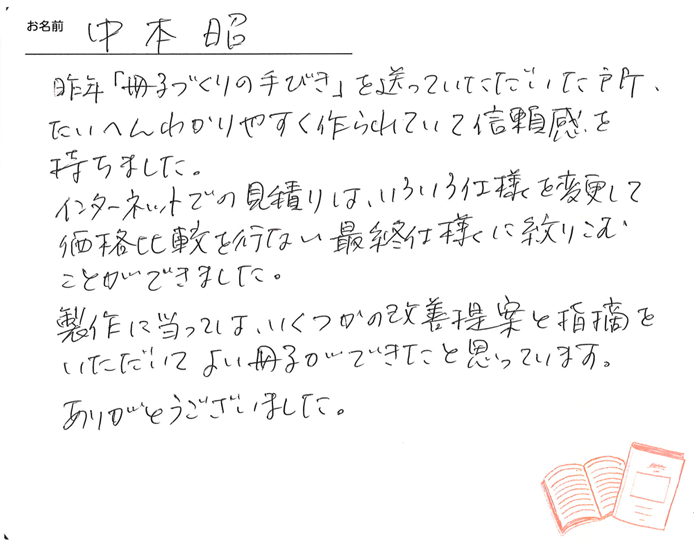 お名前 中本昭
昨年「冊子づくりの手びき」を送っていただいた所、
たいへんわかりやすく作られていて信頼感を
持ちました。
インターネットでの見積りは、いろいろ仕様を変更して
価格比較を行ない最終仕様に絞りこむ
ことができました。
製作に当っては、いくつかの改善提案と指摘を
いただいてよい冊子ができたと思っています。
ありがとうございました。